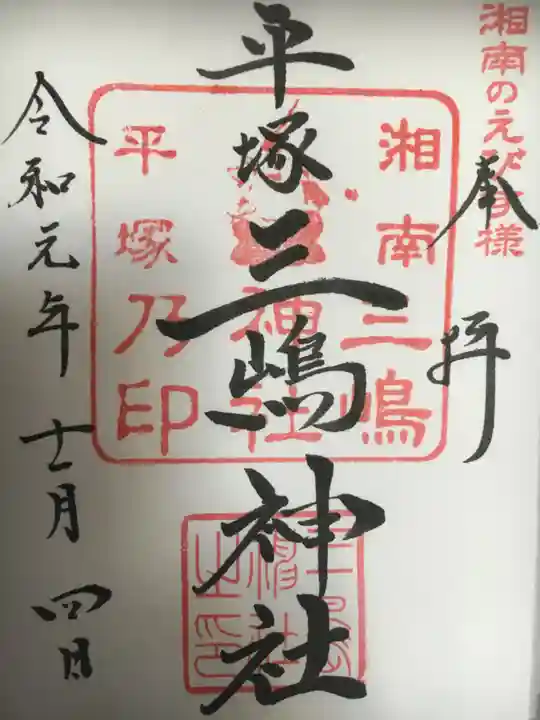 湘南のえびす様
奉拝
湘南三嶋
神社
平塚乃印
平塚三嶋神社
三嶋神社之印
令和元年十二月四日